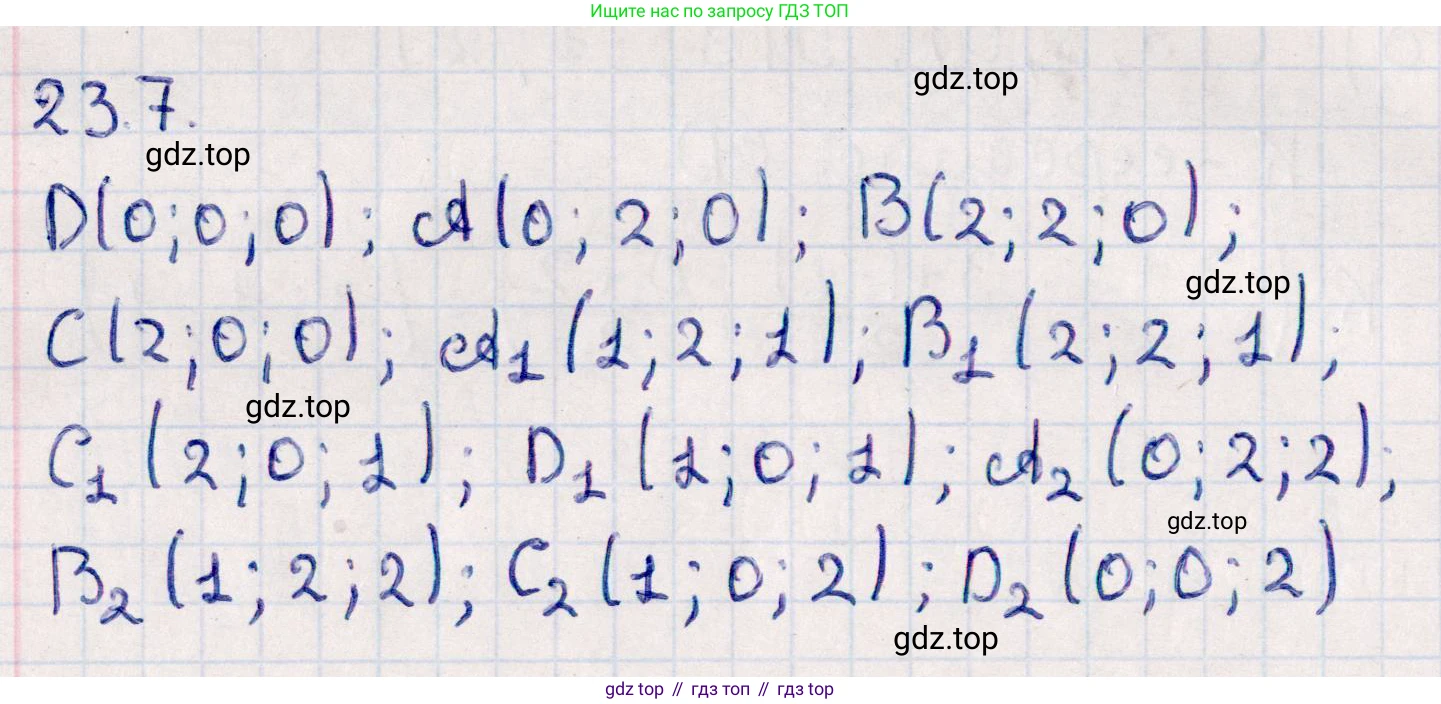 Ищите нас по запросу ГДЗ ТОП
gdz.top
23.7.
gdz.top
D(0;0;0); A(0; 2;0); B(2; 2; 0);
gdz.top
C(2;0;0); A₁(1;2;1); B₁(2;2;1);
gdz.top
C₁(2;0;1); D₁(1;0;1); A₂(0;2;2);
gdz.top
B₂(1;2;2); C₂(1;0;2); D₂(0;0;2)
gdz.top
gdz top // гдз топ // гдз top